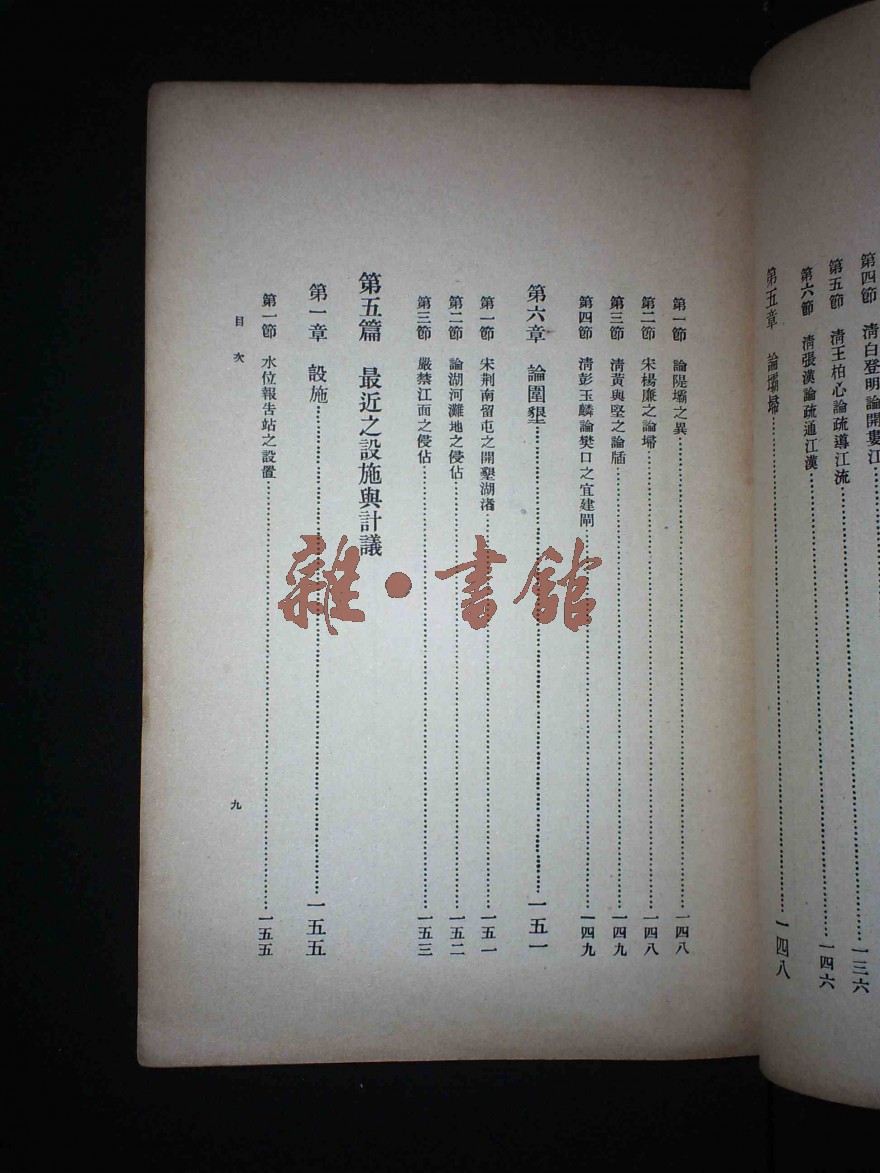 第四節　淸白登明論開婁江
第五節　淸王柏心論疏導江流……一三六
第六節　淸張漢論疏通江漢……一四六
第五章　論壩埽……一四八
第一節　論隄壩之異……一四八
第二節　宋楊廉之論埽……一四八
第三節　淸黃與堅之論牐……一四九
第四節　淸彭玉麟論樊口之宜建閘……一四九
第六章　論圍墾……一五一
第一節　宋荆南留屯之開墾湖渚……一五一
第二節　論湖河灘地之侵佔……一五二
第三節　嚴禁江面之侵佔……一五三
第五篇　最近之設施與計議
第一章　設施……一五五
第一節　水位報告站之設置……一五五
目次
九
雜·書館